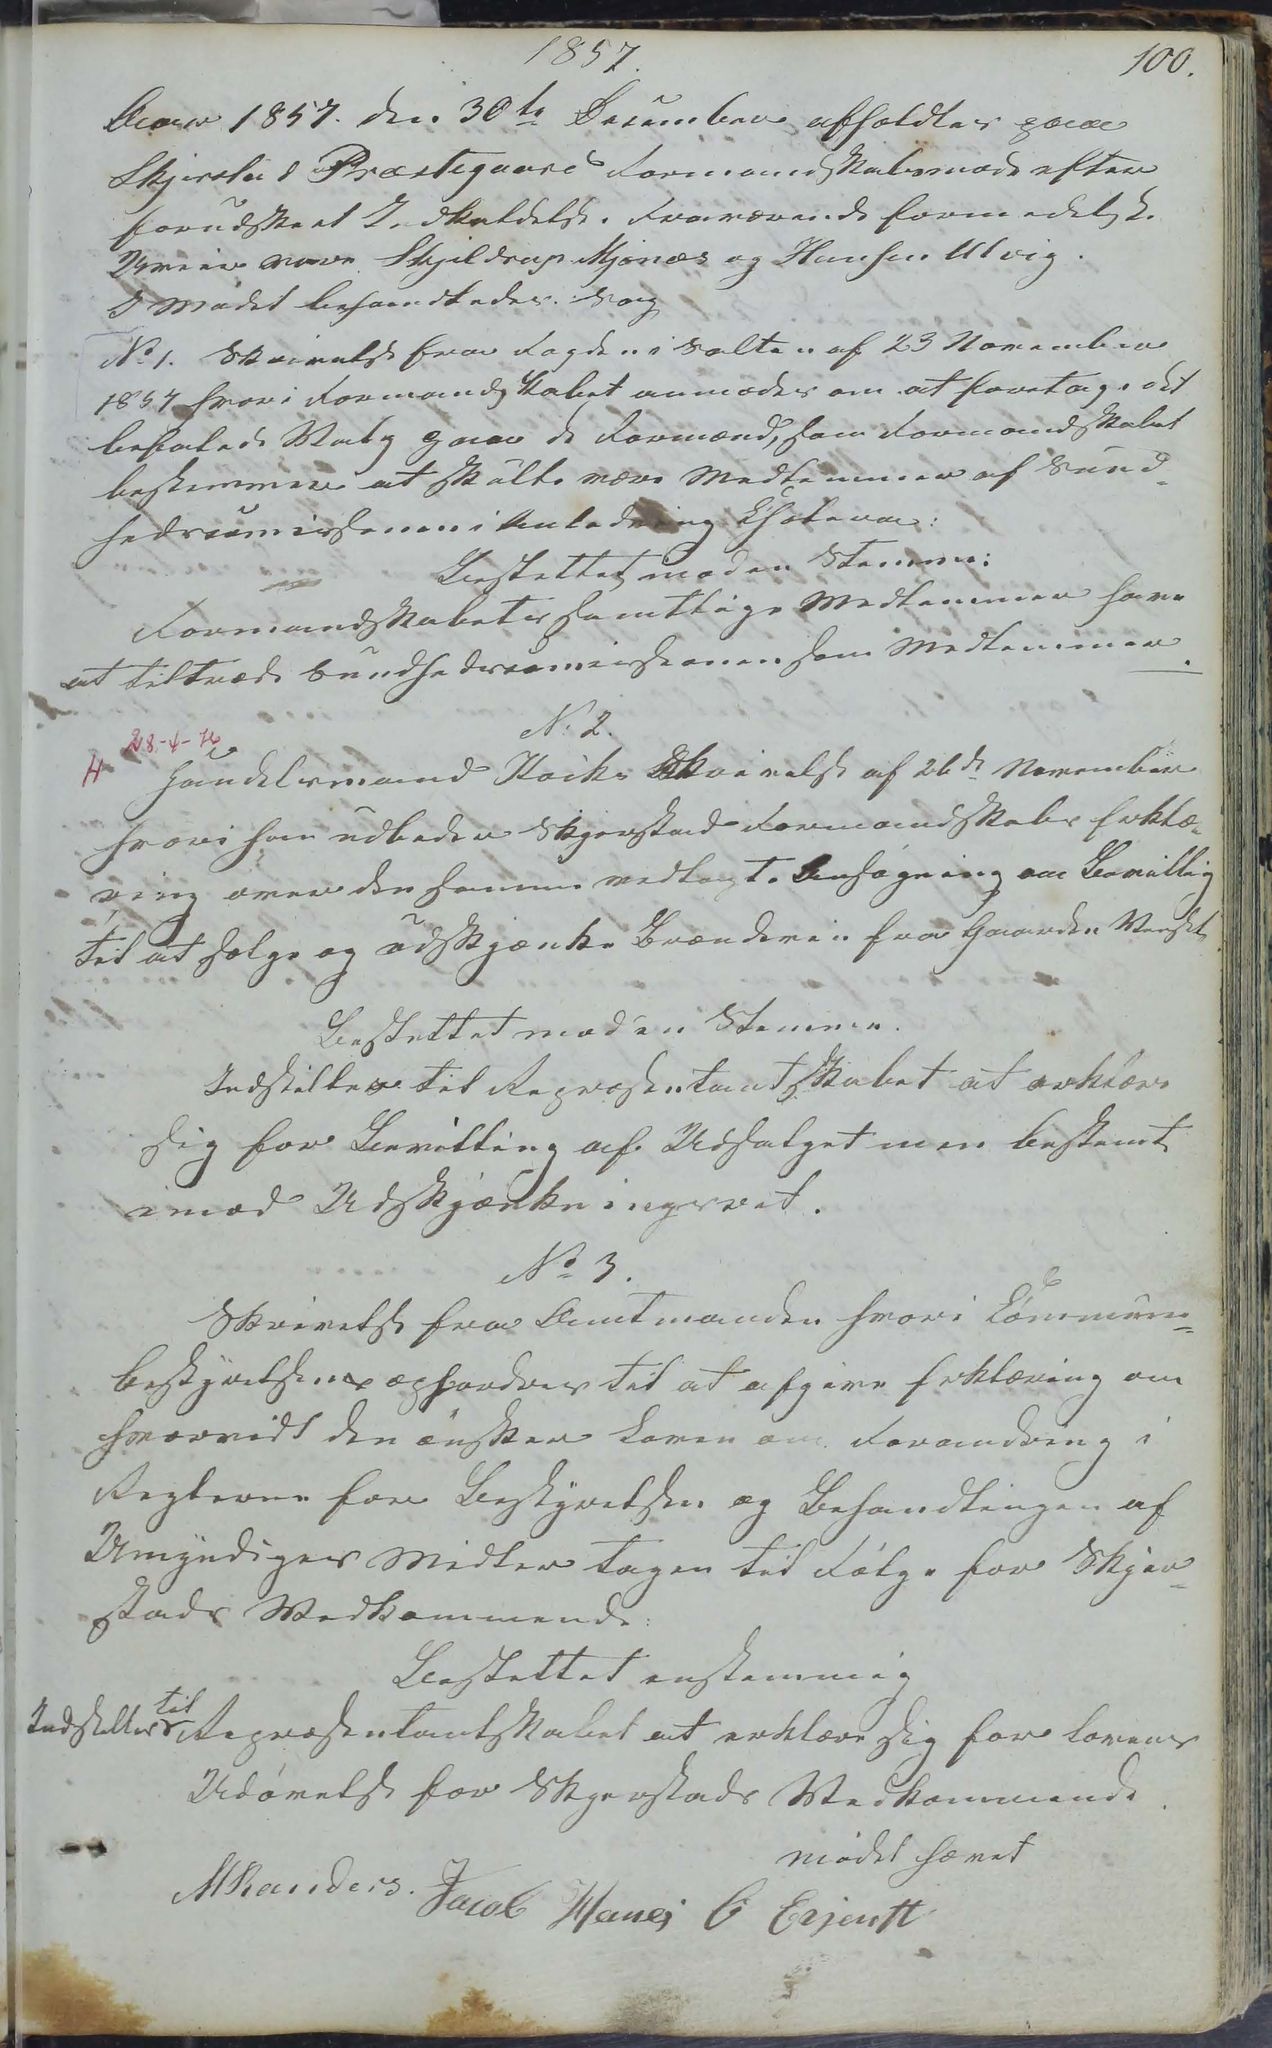 1857.
100.
Aar 1857. den 30te Desember afholdtes paa
Skjerstad Præstegaard Formandskabsmøde efter
forudskeet Indkaldelse. Fraværende formedelst
Veiir vare Skjeldrup Mjønæs og Hansen Alvig.
I Mødet behandledes: Sag
No 1. Skrivelse fra Fogden i Salten af 23 November
1857 hvori Formandskabet anmodes om at foretage det
befalede Valg paa de Formænd, som Formandskabet
bestemmer at skulle være Medlemmer af Sund-
hedscomissionen i Anledning Cholera:
Besluttet mod en Stemme:
Formandskabets samtlige Medlemmer have
at tiltræde Sundhedscomissionen som Medlemmer.
N: 2.
H
Handelsmand Koch Skrivelse af 26de November
hvori han udbeder Skjerstad Formandskabs Erklæ-
ring over den samme vedlagte Ansøgning om Bevilling
til at sælge og udskjænke Brændeviin fra Gaarden
Besluttet mod en Stemme.
Indstilles til Repræsentantskabet at erklære
sig for Bevilling af Udsalget men bestemt
imod Udskjænkningsret.
No 3.
Skrivelse fra Amtmanden hvori Commune-
bestyrelsen opfordres til at afgive Erklæring om
hvorvidt den ønsker Loven om Forandring i
Reglerne for Bestyrelsen og Behandlingen af
Umyndiges Midler tagen til Følge for Skjer-
stads Vedkommende:
Besluttet enstemmig
Indstilles til Repræsentantskabet at erklære sig for Lovens
Udøvelse for Skjerstads Vedkommende.
Mødet hævet
M Randers. Jacob Hans C Erjentt